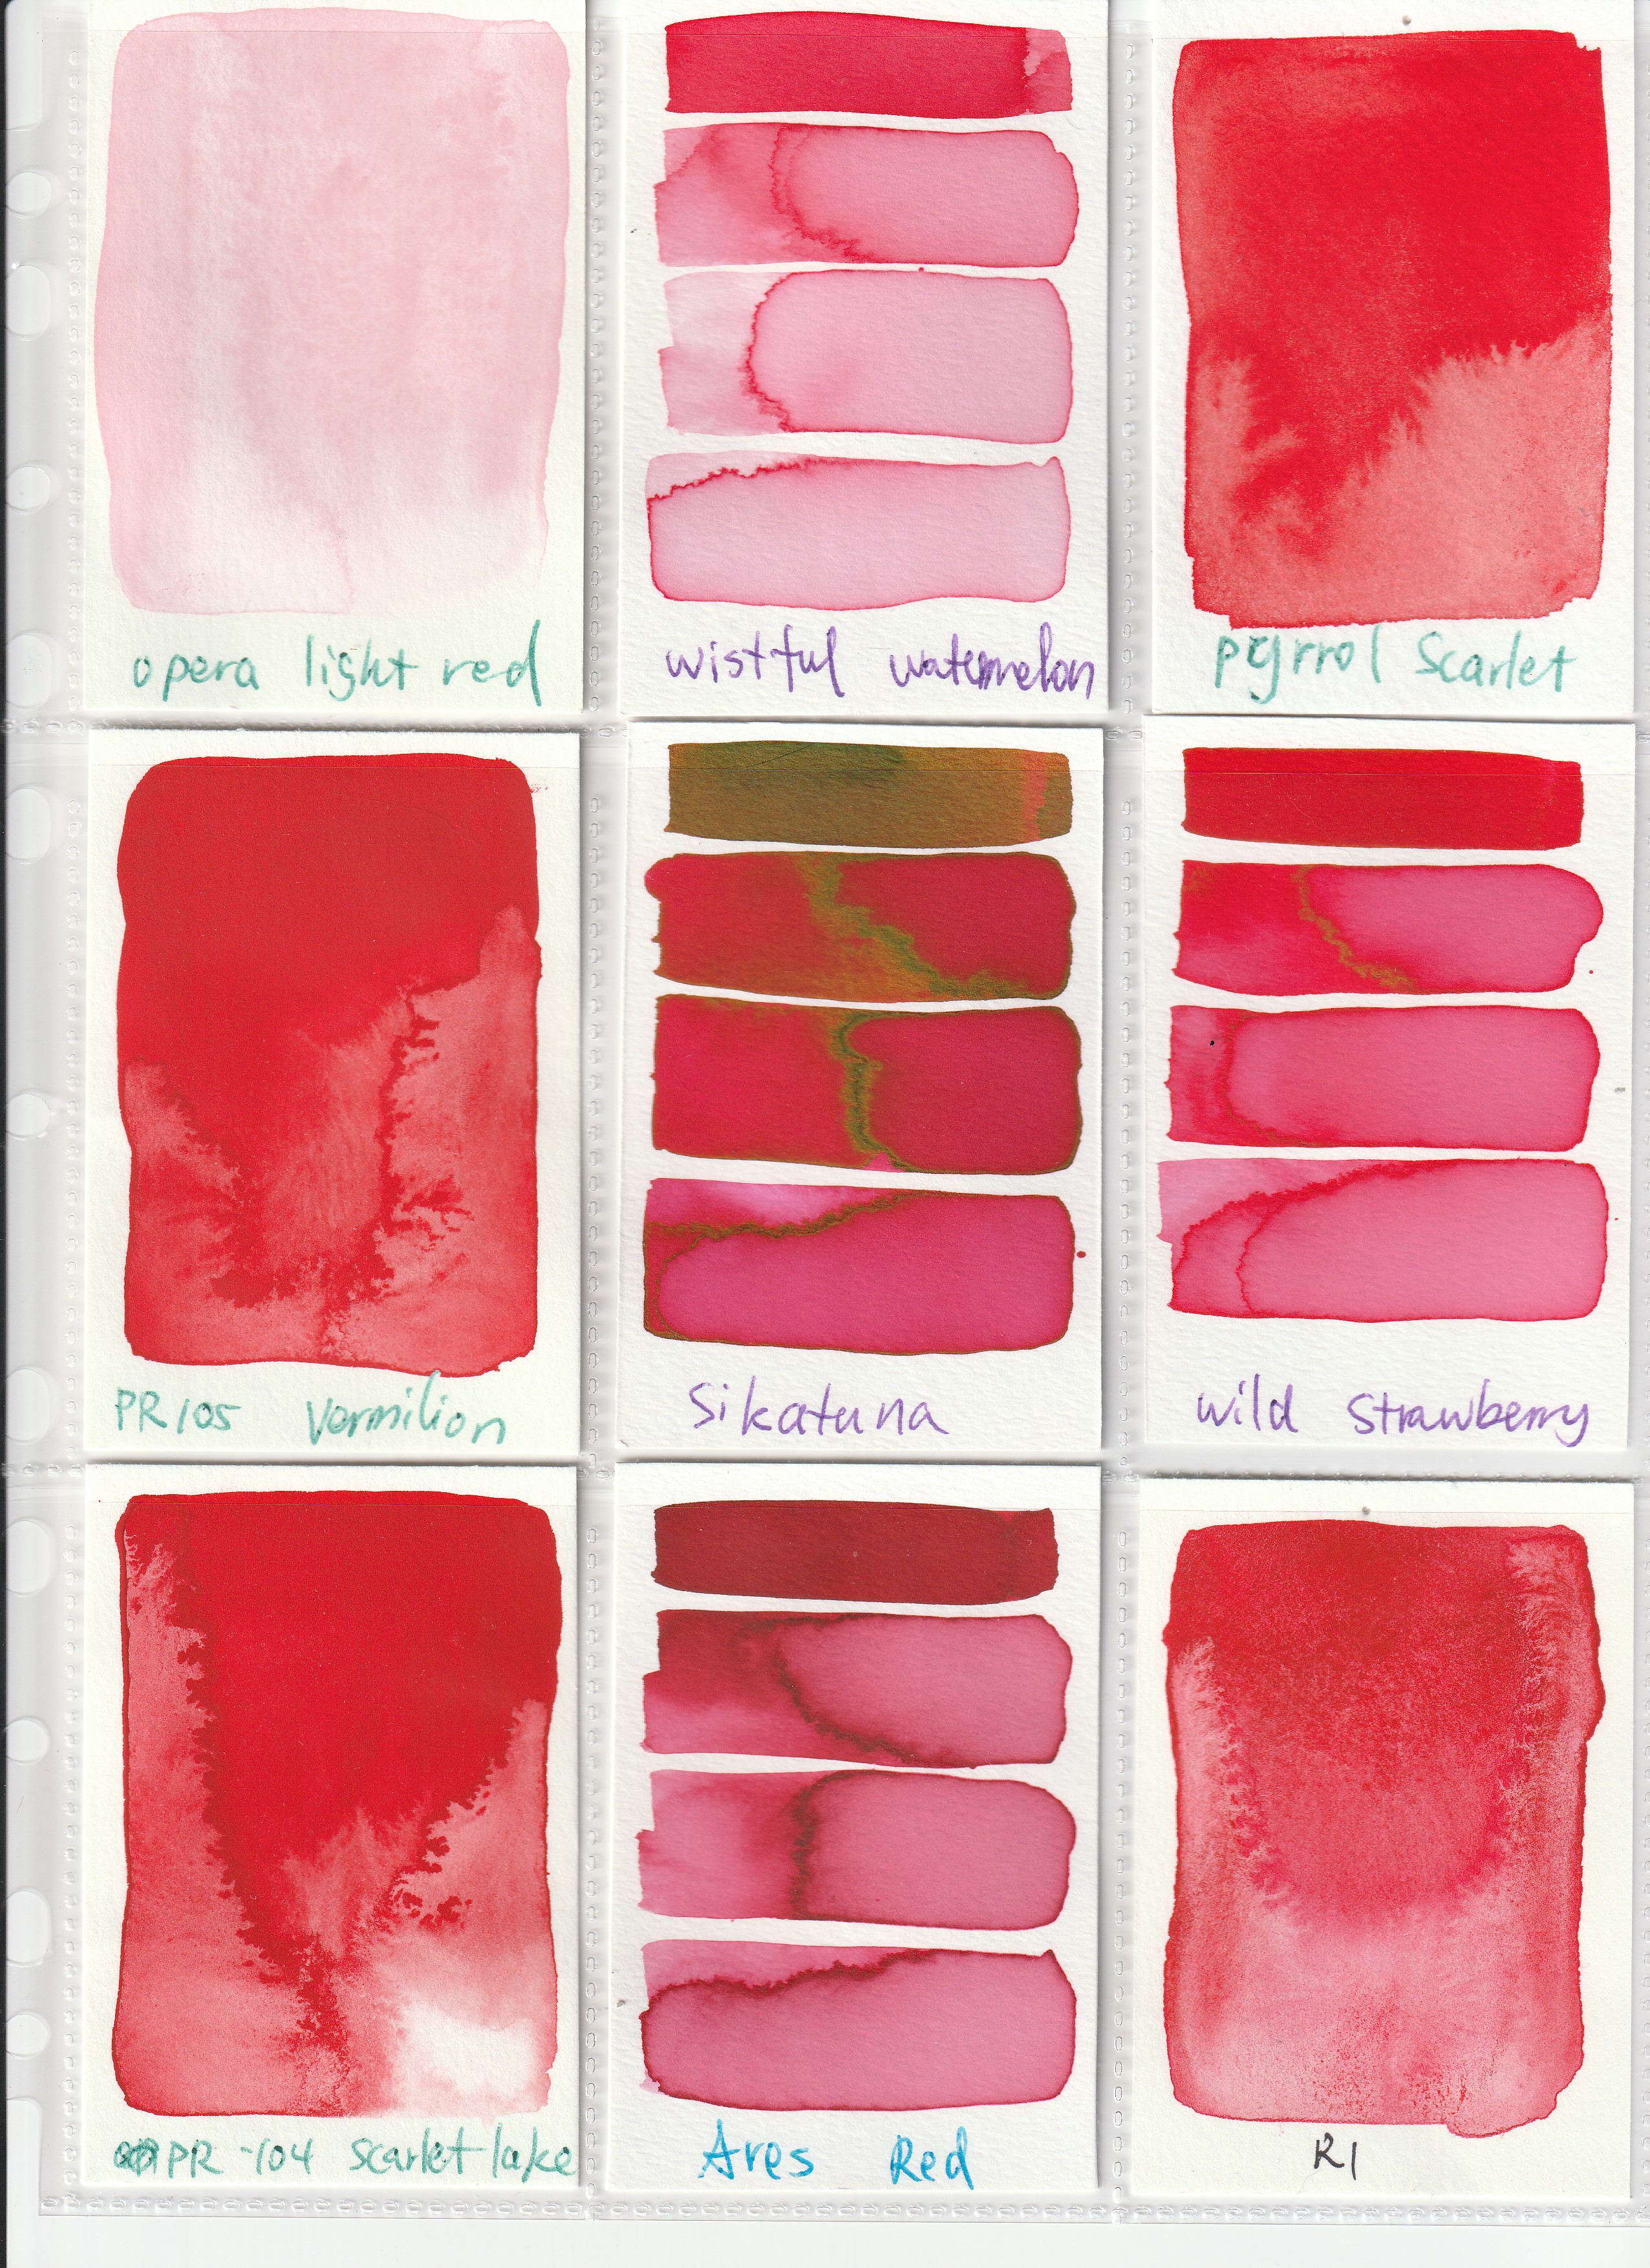 opera light red
wistful watermelon
pyrrol Scarlet
PR105 Vermilion
Sikatuna
wild Strawberry
PR-104 scarlet lake
Ares Red
R1